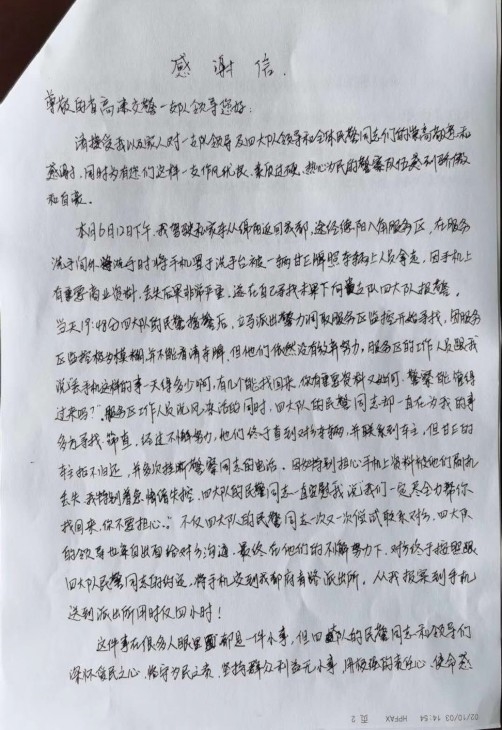 感谢信.
尊敬的省高速交警一支队领导您好:
请接受我以及家人对一支队领导及四大队领导和全体民警同志们的崇高敬意和
感谢,同时为有您们这样一支作风优良、素质过硬、热心为民的警察队伍感到骄傲
和自豪。
本月6月12日下午,我驾驶私家车从绵阳返回成都,途经德阳八角服务区,在服务
洗手间外洗手时将手机置于洗手台被一辆甘E牌照车辆上人员拿走,因手机上
有重要商业资料,丢失后果非常严重,遂在自己寻找未果下向支队四大队报警,
当天19:48分四大队的民警接警后,立马派出警力调取服务区监控开始寻找,因服务
区监控极为模糊,并不能看清车牌,但他们依然没有放弃努力,服务区的工作人员跟我
说丢手机这样的事一天得多少啊,有几个能找回来,你有重要资料又如何,警察能管得
过来吗?"服务区工作人员说风凉话的同时,四大队的民警同志却一直在为我的事
多方寻找、筛查,经过不懈努力,他们终于查到对方车辆,并联系到车主,但甘E的
车主拒不归还,并多次挂断警察同志的电话,因我特别担心手机上资料被他们刷机
丢失,我特别着急情绪失控,四大队的民警同志一直安慰我说"我们一定尽全力帮你
找回来,你不要担心。"不仅四大队的民警同志一次又一次尝试联系对方,四大队
的领导也亲自出面给对方沟通,最终在他们的不懈努力下,对方终于按照跟
四大队民警同志的约定,将手机交到成都府青路派出所,从我报案到手机
送到派出所用时仅四小时!
这件事在很多人眼里都是一件小事,但四大队的民警同志和领导们
深怀爱民之心、恪守为民之责、坚持群众利益无小事,用极强的责任心、使命感
02/10/03 14:54 HPFAX 页 2